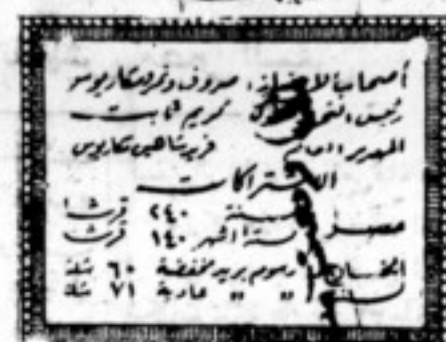 أصحاب الامتياز: صروف ونمر ومكاريوس
رئيس التحرير كريم ثابت
المدير العام فريد شاهين مكاريوس
الاشتراكات
مصر سنة ٢٤٠ قرشا
ستة أشهر ١٤٠ قرش
الخارج رسوم بريد مخفضة ٦٠ شلن
لسنة „ „ عادية ٧١ شلن